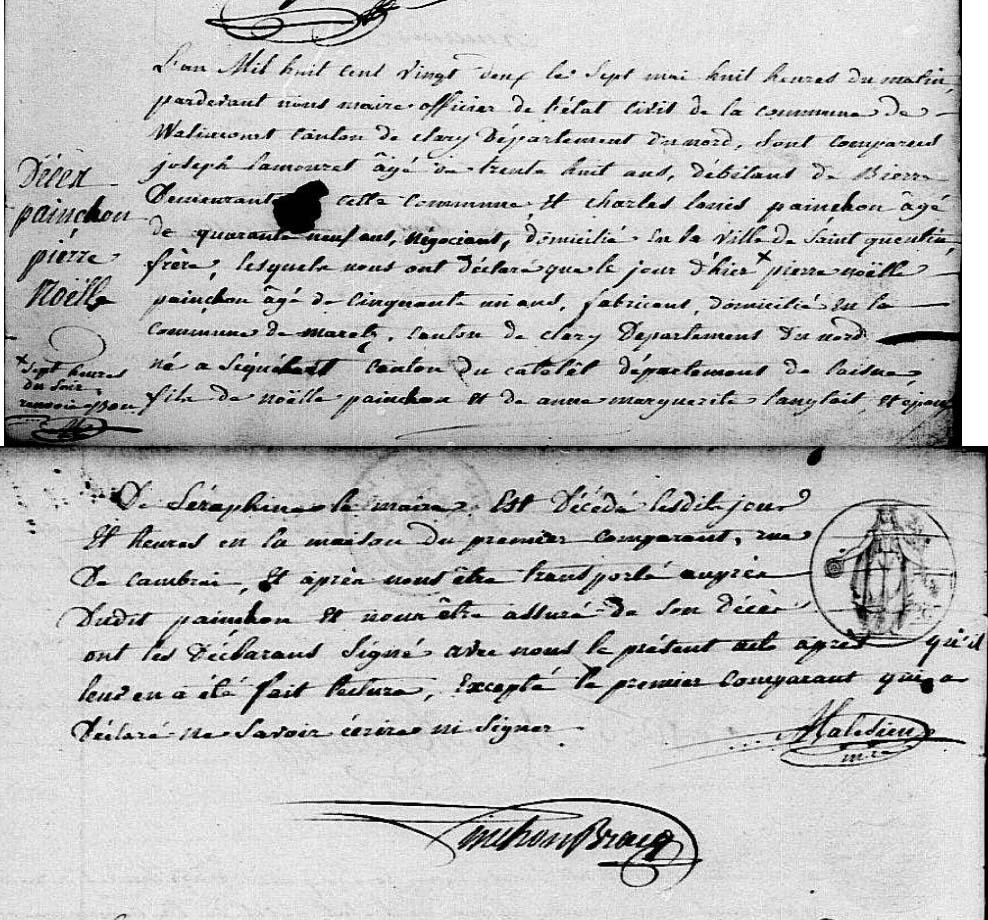 L'an Mil huit cent vingt deux le Sept mai huit heures du matin,
pardevant nous maire officier de l'état civil de la commune de
Walincourt canton de clary Département du nord, sont comparus
joseph Lamouret âgé de trente huit ans, débitant de Bierre
Demeurant cette commune Et charles louis painchon âgé
de quarante neuf ans, négociant, domicilié En la Ville de Saint quentin,
frère, lesquels nous ont déclaré que le jour d'hier x pierre noëlle
painchon âgé de cinquante un ans, fabricant, domicilié En la
Commune de maretz, canton de clary Departement du nord
né a Séquéhart canton du catelet département de laisne,
fils de noëlle painchon Et de anne marguerite langlait, Et epoux
Décès
painchon
pierre
Noëlle
x Sept heures
du Soir
renvoie Bon
De Séraphine le maire Est Décédé lesdit jour
Et heures en la maison du premier comparant, rue
De cambrai, Et après nous être transporté auprès
Dudit painchon Et nous être assuré de son décès
ont les Déclarans Signé avec nous le présent acte après qu'il
leur en a été fait lecture, Excepté le premier Comparant qui a
Déclaré ne Savoir écrire ni Signer
Malesieu
mre
Painchon Bracq